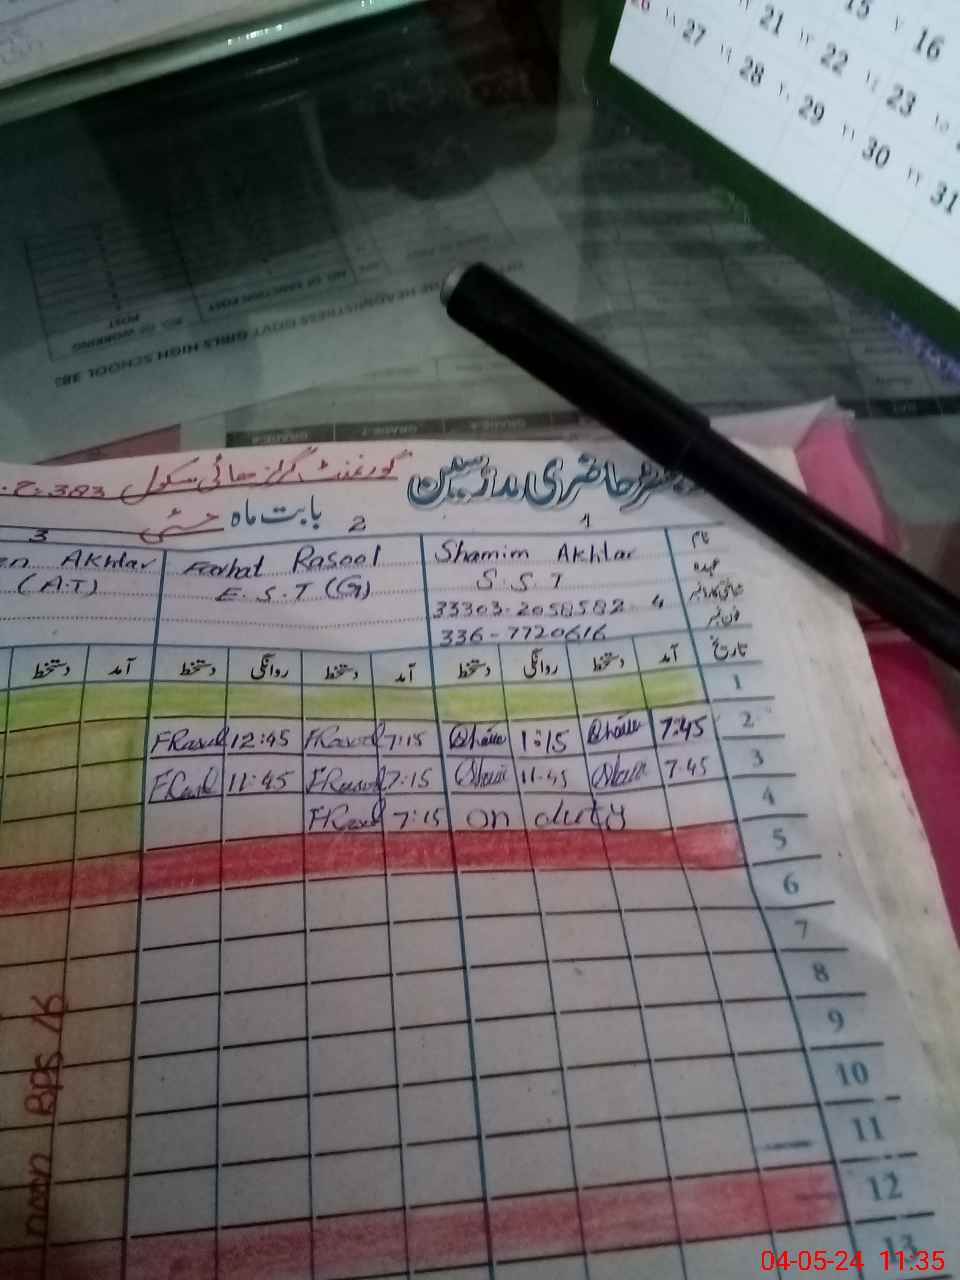 15 ٧ 16
21 ١٣ 22 ١٤ 23 ١٥
26 ١٨ 27 ١٩ 28 ٢٠ 29 ٢١ 30 ٢٢ 31
NO. OF SANCTION POST
NO. OF WORKING POST
HEADMISTRESS GOVT GIRLS HIGH SCHOOL 383
حاضری مدرسین گورنمنٹ گرلز ھائی سکول 383
بابت ماہ مئی
1 2 3
نام Shamim Akhtar Farhat Rasool Akhtar
عہدہ S.S.T E.S.T (G) (A.T)
شناختی کارڈ نمبر 33303-2058582-4
فون نمبر 336-7720616
تاریخ آمد دستخط روانگی دستخط آمد دستخط روانگی دستخط آمد دستخط
1
2 7:45 1:15 7:15 FRasool 12:45 FRasool
3 7:45 11:45 7:15 FRasool 11:45 FRasool
4 on duty 7:15 FRasool
5
6
7
8
9
10
11
12
13
BPS 15
04-05-24 11:35